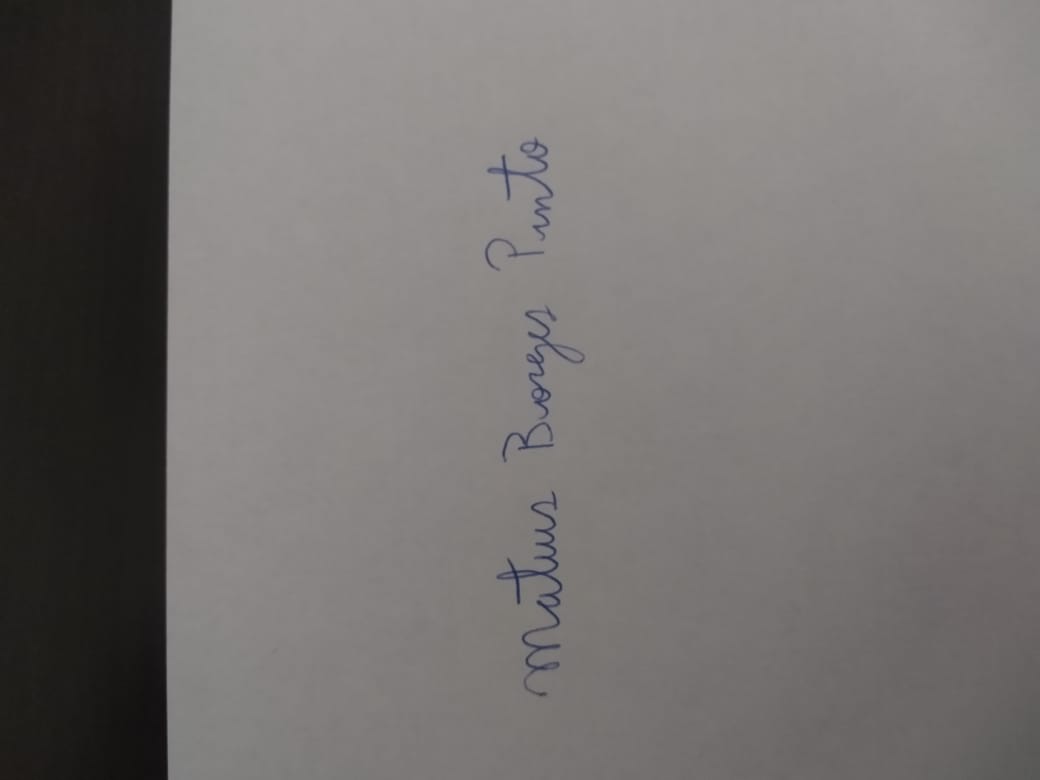 Mateus Borges Pinto